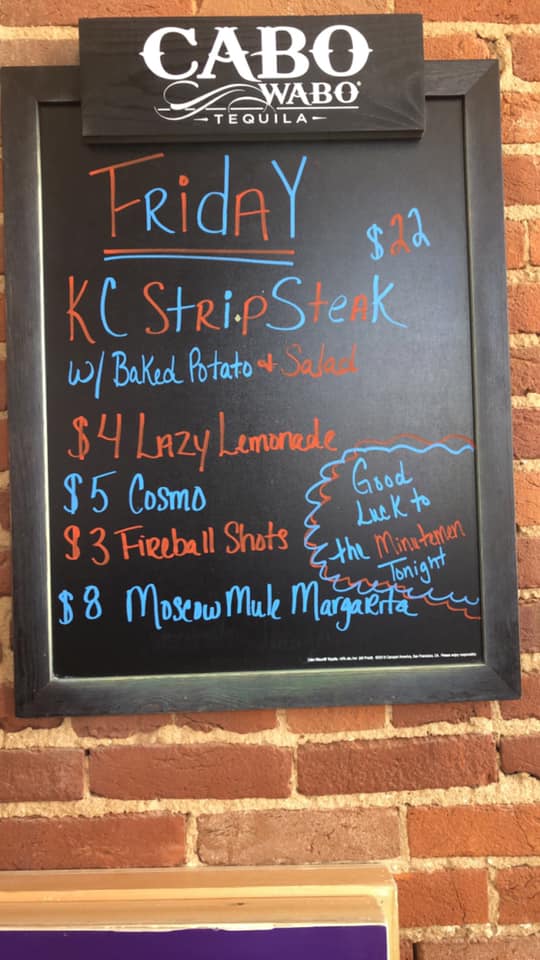 CABO
WABO
TEQUILA
FRidAY
$22
KC StRip Steak
w/ Baked Potato & Salad
$4 Lazy Lemonade
$5 Cosmo
$3 Fireball Shots
$8 Moscow Mule Margarita
Good
Luck to
the Minutemen
Tonight